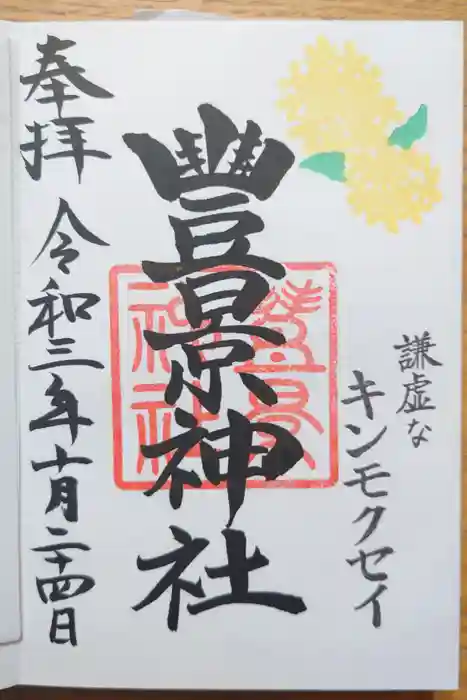 謙虚な
キンモクセイ
豐景神社
豐景
神社
奉拝
令和三年十月二十四日